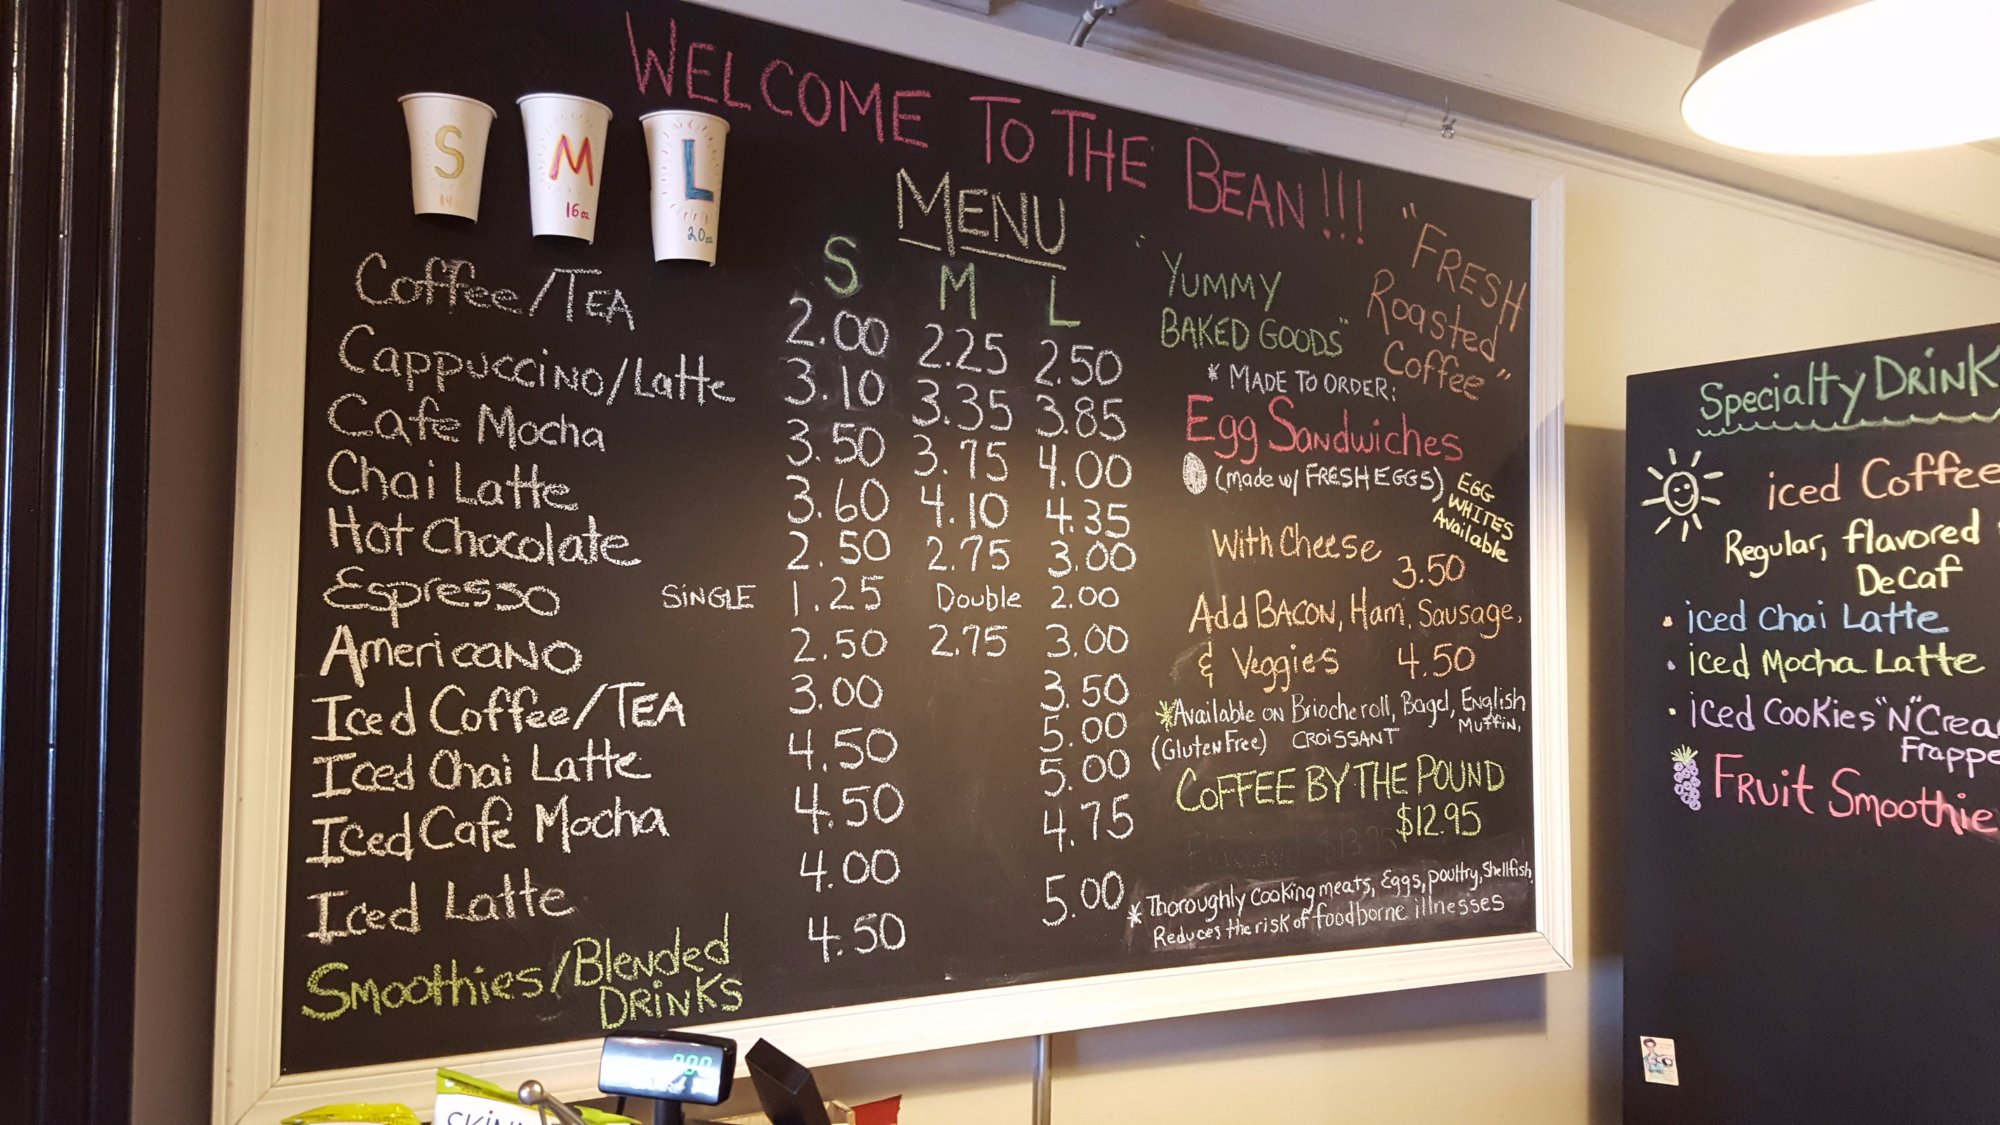 WELCOME TO THE BEAN!!!
S
14oz
M
16oz
L
20oz
MENU
S M L
Coffee/TEA 2.00 2.25 2.50
Cappuccino/Latte 3.10 3.35 3.85
Cafe Mocha 3.50 3.75 4.00
Chai Latte 3.60 4.10 4.35
Hot Chocolate 2.50 2.75 3.00
Espresso SINGLE 1.25 Double 2.00
AmericaNO 2.50 2.75 3.00
Iced Coffee/TEA 3.00 3.50
Iced Chai Latte 4.50 5.00
Iced Cafe Mocha 4.50 5.00
Iced Latte 4.00 4.75
Smoothies/Blended DRiNKS 4.50 5.00
YUMMY
BAKED GOODS"
"FRESH
Roasted
Coffee"
* MADE TO ORDER:
Egg Sandwiches
(made w/ FRESH EGGS)
EGG
WHITES
Available
With Cheese 3.50
Add BACON, Ham, Sausage,
& Veggies 4.50
*Available on Brioche roll, Bagel, English Muffin,
(Gluten Free) CROISSANT
COFFEE BY THE POUND
$12.95
* Thoroughly Cooking meats, Eggs, poultry, Shellfish
Reduces the risk of foodborne illnesses
Specialty DRiNK
iced Coffee
Regular, flavored
Decaf
• iced Chai Latte
• iced Mocha Latte
• iced Cookies "N" Crea
Frappe
FRuiT Smoothie
000
SKiN